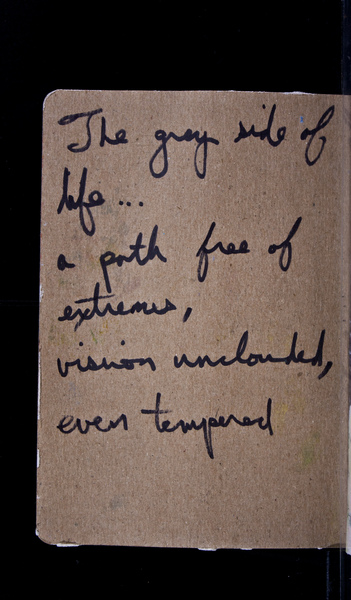 The grey side of
life...
a path free of
extremes,
vision unclouded,
even tempered